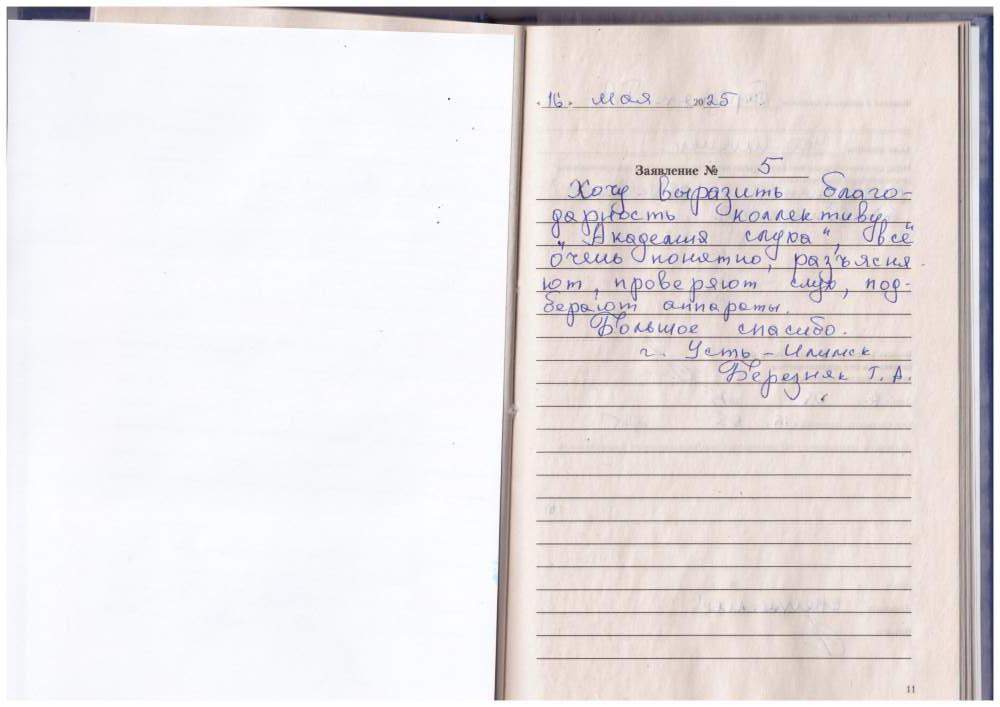 « 16 » мая 2025
Заявление № 5
Хочу выразить благо-
дарность коллективу
"Академия слуха", всё
очень понятно, разъясня
ют, проверяют слух, под-
берают аппараты.
Большое спасибо.
г. Усть-Илимск
Березняк Т. А.
11